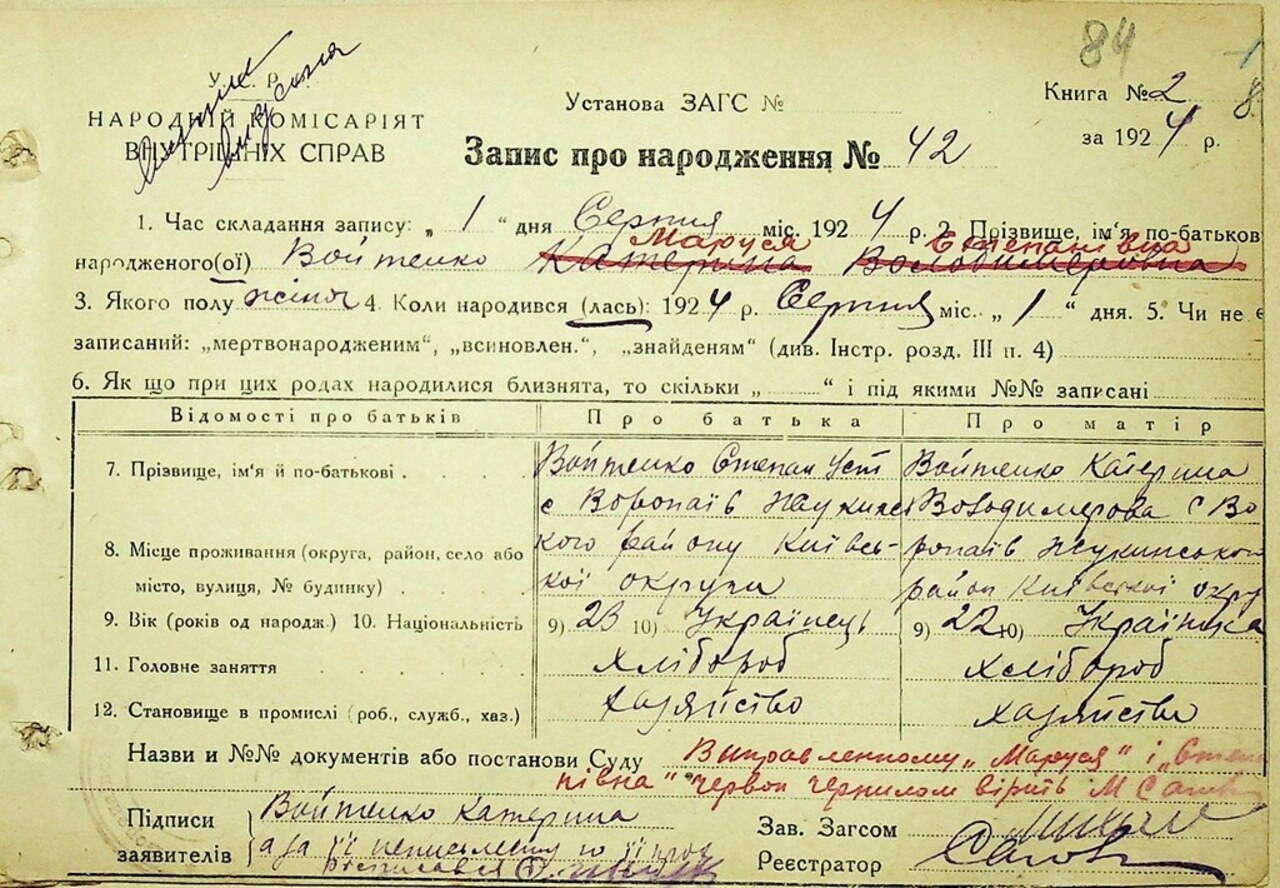 84
У. Р.
НАРОДНІЙ КОМІСАРІЯТ
ВНУТРІШНІХ СПРАВ
Установа ЗАГС №
Книга № 2
за 1924 р.
8
Запис про народження № 42
1. Час складання запису: „ 1 “ дня Серпня міс. 1924 р. 2. Прізвище, ім'я по-батьков
Маруся Степанівна
народженого(ої) Войтенко Катерина Володимеровна
3. Якого полу жіноч 4. Коли народився (лась): 1924 р. Серпня міс. „ 1 “ дня. 5. Чи не є
записаний: „мертвонародженим“, „всиновлен.“, „знайденям“ (див. Інстр. розд. III п. 4)
6. Як що при цих родах народилися близнята, то скільки „ “ і під якими №№ записані
Відомості про батьків Про батька Про матір
7. Прізвище, ім'я й по-батькові Войтенко Степан Уст Войтенко Катерина
с Воропаїв Жукинсь Володимерова с Во
8. Місце проживання (округа, район, село або кого району Київсь- ропаїв Жукинського
місто, вулиця, № будинку) кої округи район Київської окру
9. Вік (років од народж.) 10. Національність 9) 23 10) Українець 9) 22 10) Українка
11. Головне заняття Хлібороб Хлібороб
12. Становище в промислі (роб., служб., хаз.) хазяйство хазяйство
Назви и №№ документів або постанови Суду Виправленному „Маруся“ і „Степа
нівна“ червон чернилом вірить М
Підписи Войтенко Катерина
заявителів а за її неписьменну
Зав. Загсом
Реєстратор